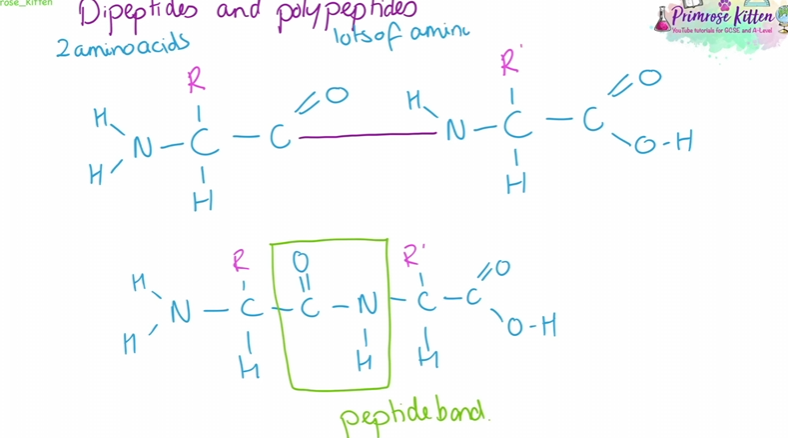 rose_kitten
Dipeptides and polypeptides
Primrose Kitten
YouTube tutorials for GCSE and A-Level
2 amino acids
lots of amino
R R'
H O H O
H N - C - C N - C - C O-H
H H
R O R'
H O
N - C - C - N - C - C
H O-H
H H H
peptide bond.